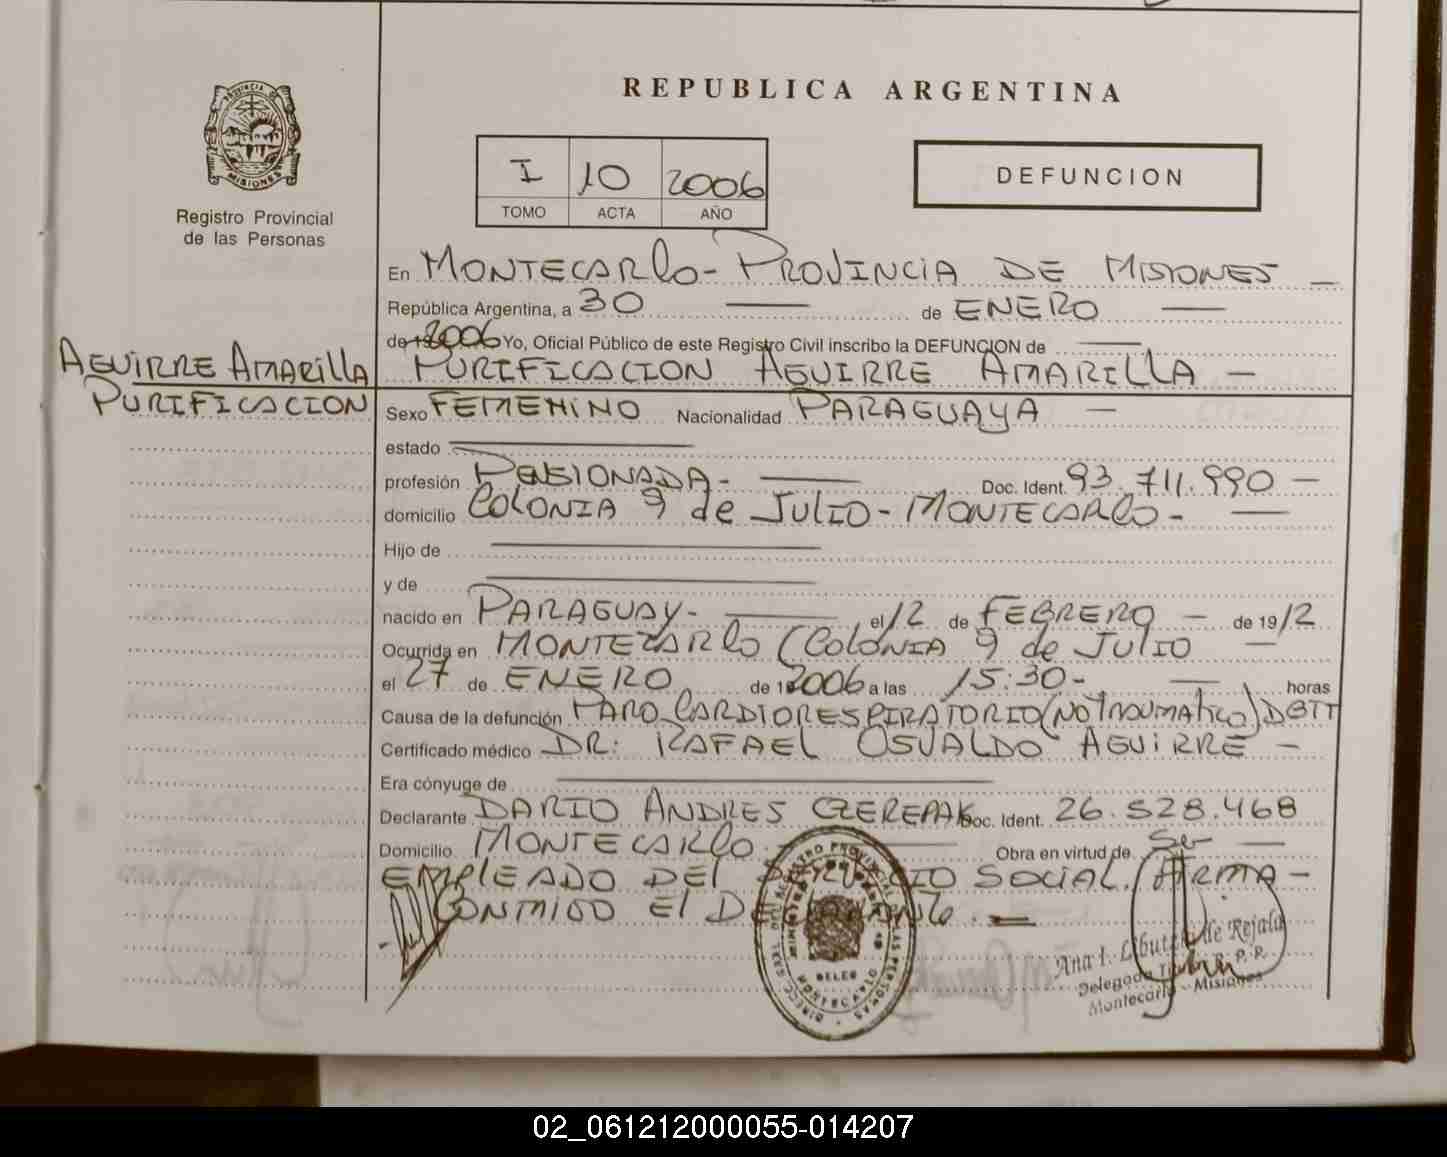 PROVINCIA DE
MISIONES
Registro Provincial
de las Personas
REPUBLICA ARGENTINA
I 10 2006
TOMO ACTA AÑO
DEFUNCION
En MONTECARLO - PROVINCIA DE MISIONES —
República Argentina, a 30 — de ENERO —
de 2006 Yo, Oficial Público de este Registro Civil inscribo la DEFUNCION de —
AGUIRRE AMARILLA
PURIFICACION
PURIFICACION AGUIRRE AMARILLA —
Sexo FEMENINO Nacionalidad PARAGUAYA —
estado —
profesión PENSIONADA - — Doc. Ident. 93.711.990 —
domicilio COLONIA 9 de JULIO - MONTECARLO - —
Hijo de —
y de —
nacido en PARAGUAY - — el 12 de FEBRERO — de 1912
Ocurrida en MONTECARLO (COLONIA 9 de JULIO —
el 27 de ENERO de 2006 a las 15:30 - — horas
Causa de la defunción PARO CARDIORESPIRATORIO (NO TRAUMATICO) DBTT
Certificado médico DR: RAFAEL OSVALDO AGUIRRE —
Era cónyuge de —
Declarante DARIO ANDRES CZEREPAK Doc. Ident. 26.528.468
Domicilio MONTECARLO — Obra en virtud de Ser —
EMPLEADO DEL SOCIAL. FIRMA —
CONMIGO El . =
MONTECARLO
Ana I. de Rejala
Delegada R. P. P.
Montecarlo - Misiones
02_061212000055-014207